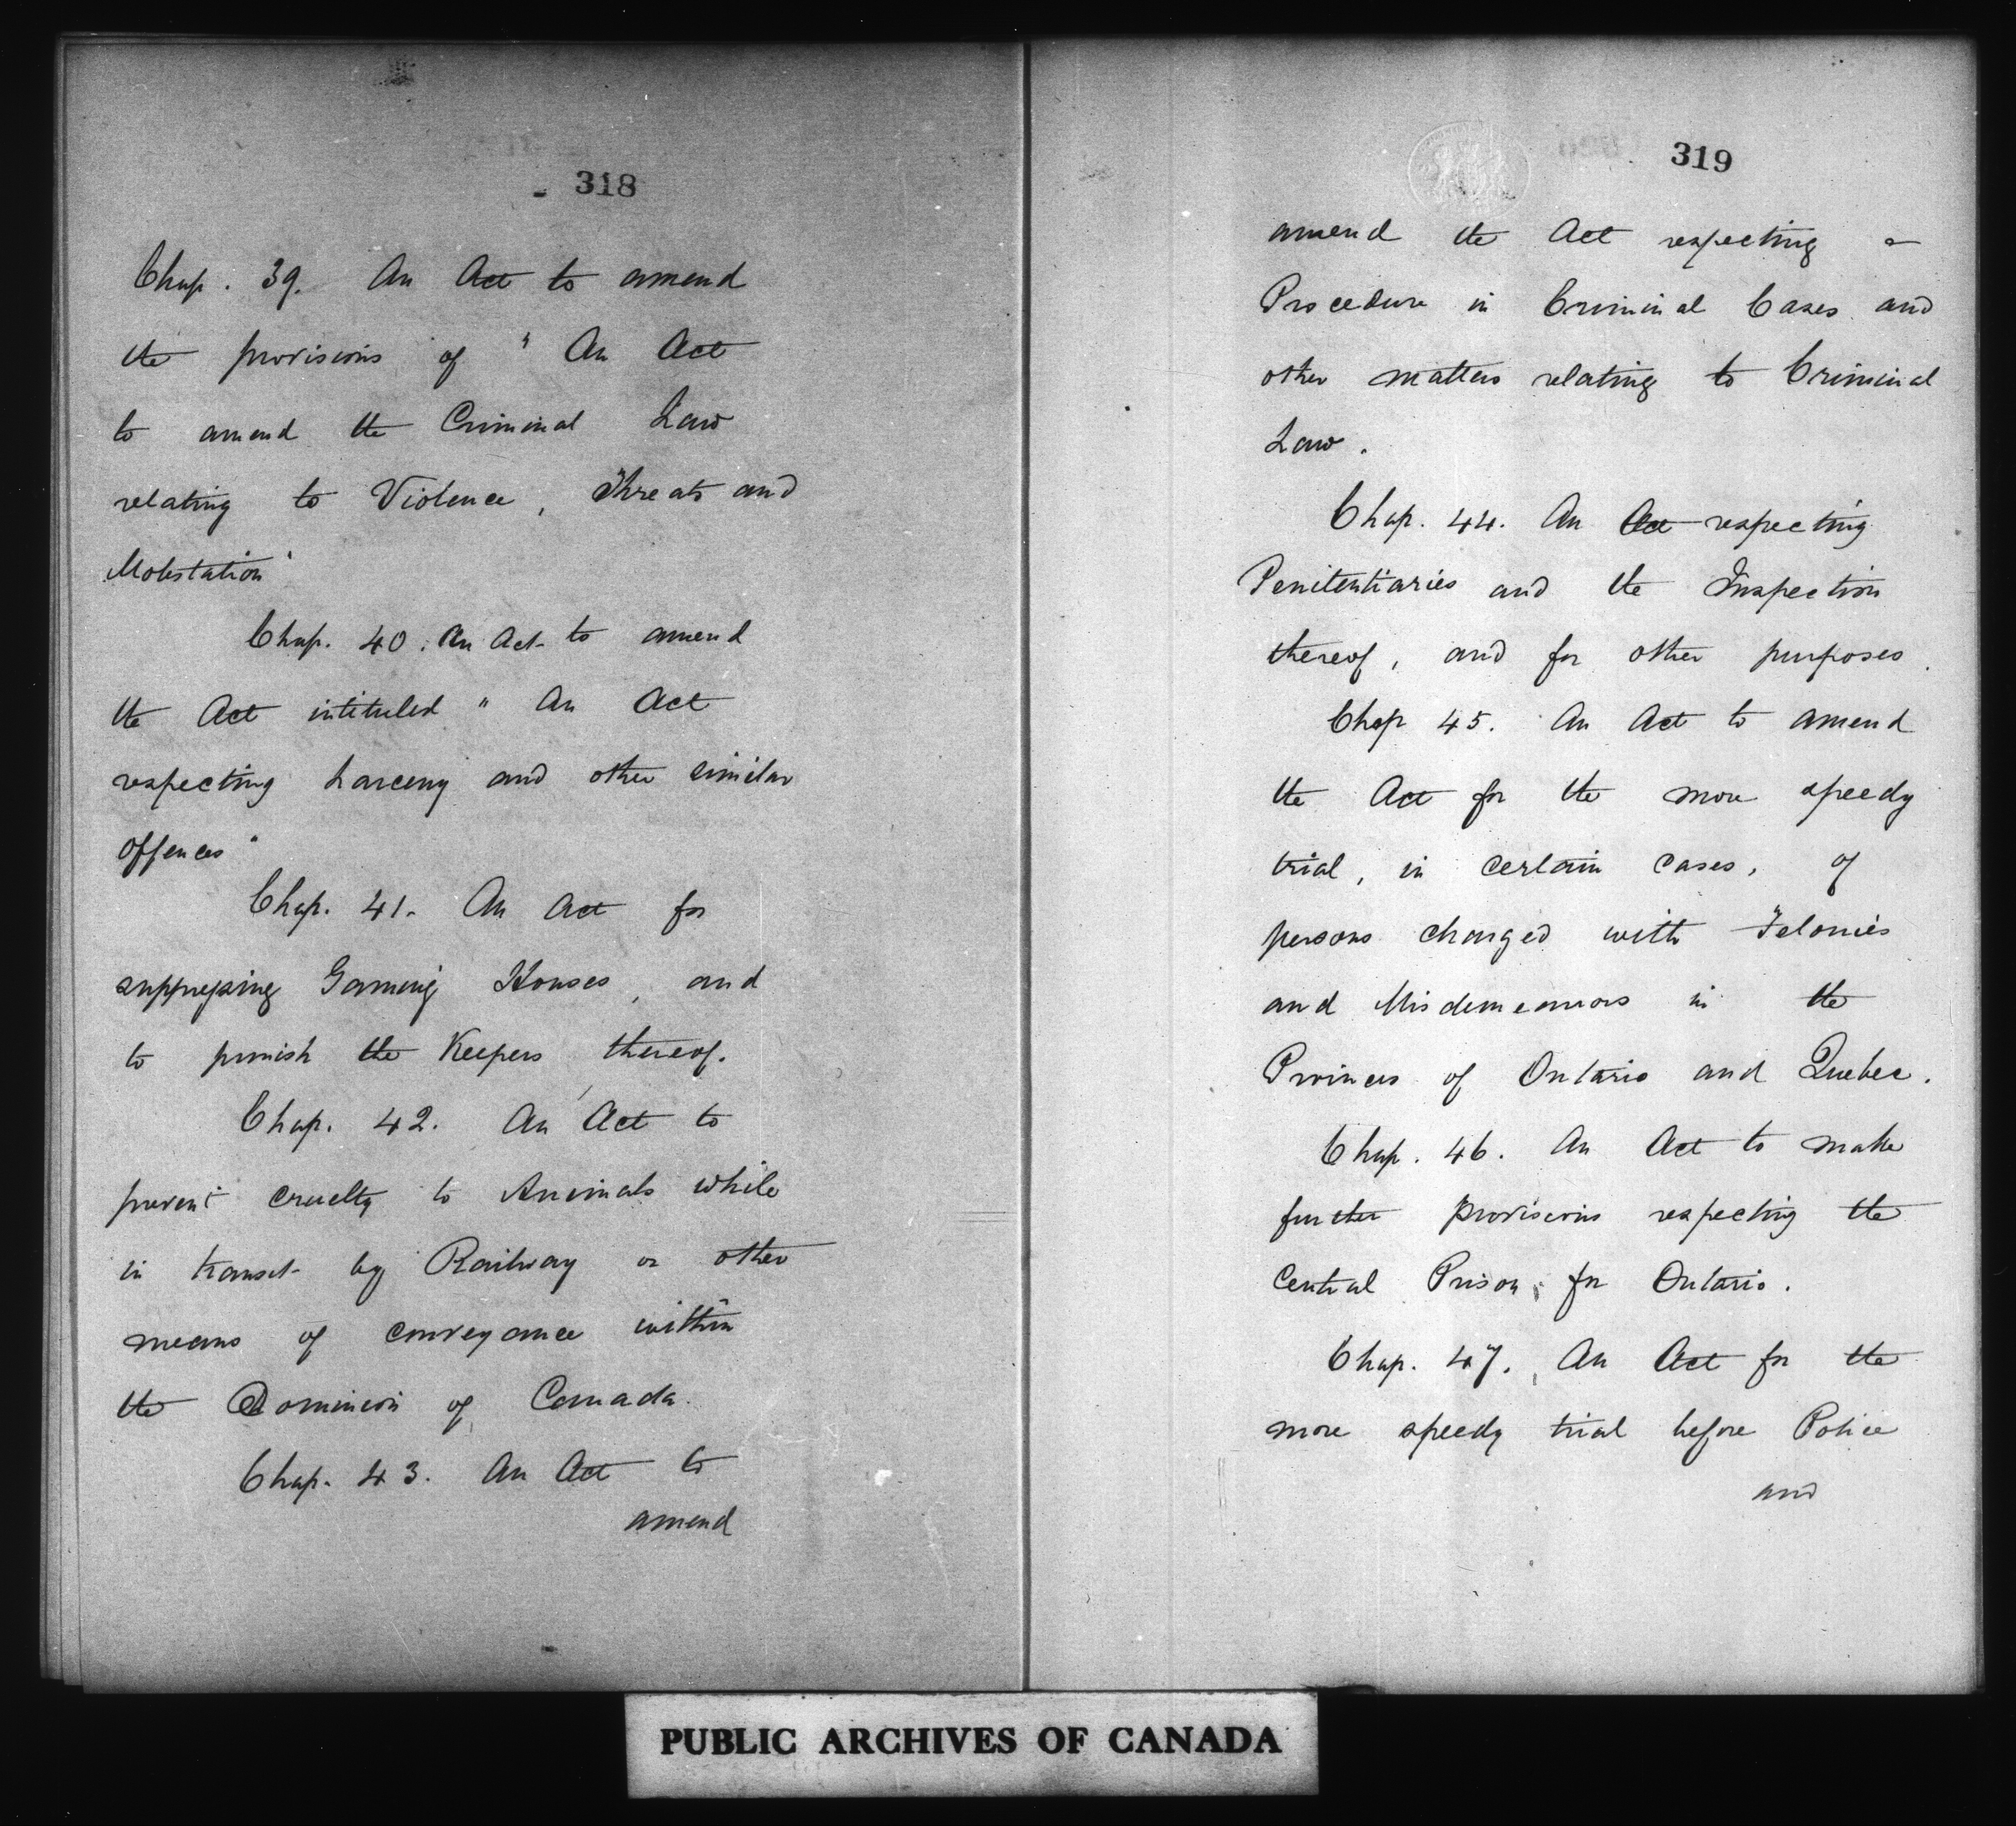 318
Chap. 39. An Act to amend
the provisions of "An Act
to amend the Criminal Law
relating to Violence, Threats and
Molestation"
Chap. 40. An Act to amend
the Act intituled "An Act
respecting Larceny and other similar
offences"
Chap. 41. An Act for
suppressing Gaming Houses, and
to punish the Keepers thereof.
Chap. 42. An Act to
prevent cruelty to Animals while
in transit by Railway or other
means of conveyance within
the Dominion of Canada.
Chap. 43. An Act to
amend
319
amend the Act respecting
Procedure in Criminal Cases and
other matters relating to Criminal
Law.
Chap. 44. An Act respecting
Penitentiaries and the Inspection
thereof, and for other purposes.
Chap 45. An Act to amend
the Act for the more speedy
trial, in certain cases, of
persons charged with Felonies
and Misdemeanors in the
Provinces of Ontario and Quebec.
Chap. 46. An Act to make
further provisions respecting the
Central Prison for Ontario.
Chap. 47. An Act for the
more speedy trial before Police
and
PUBLIC ARCHIVES OF CANADA